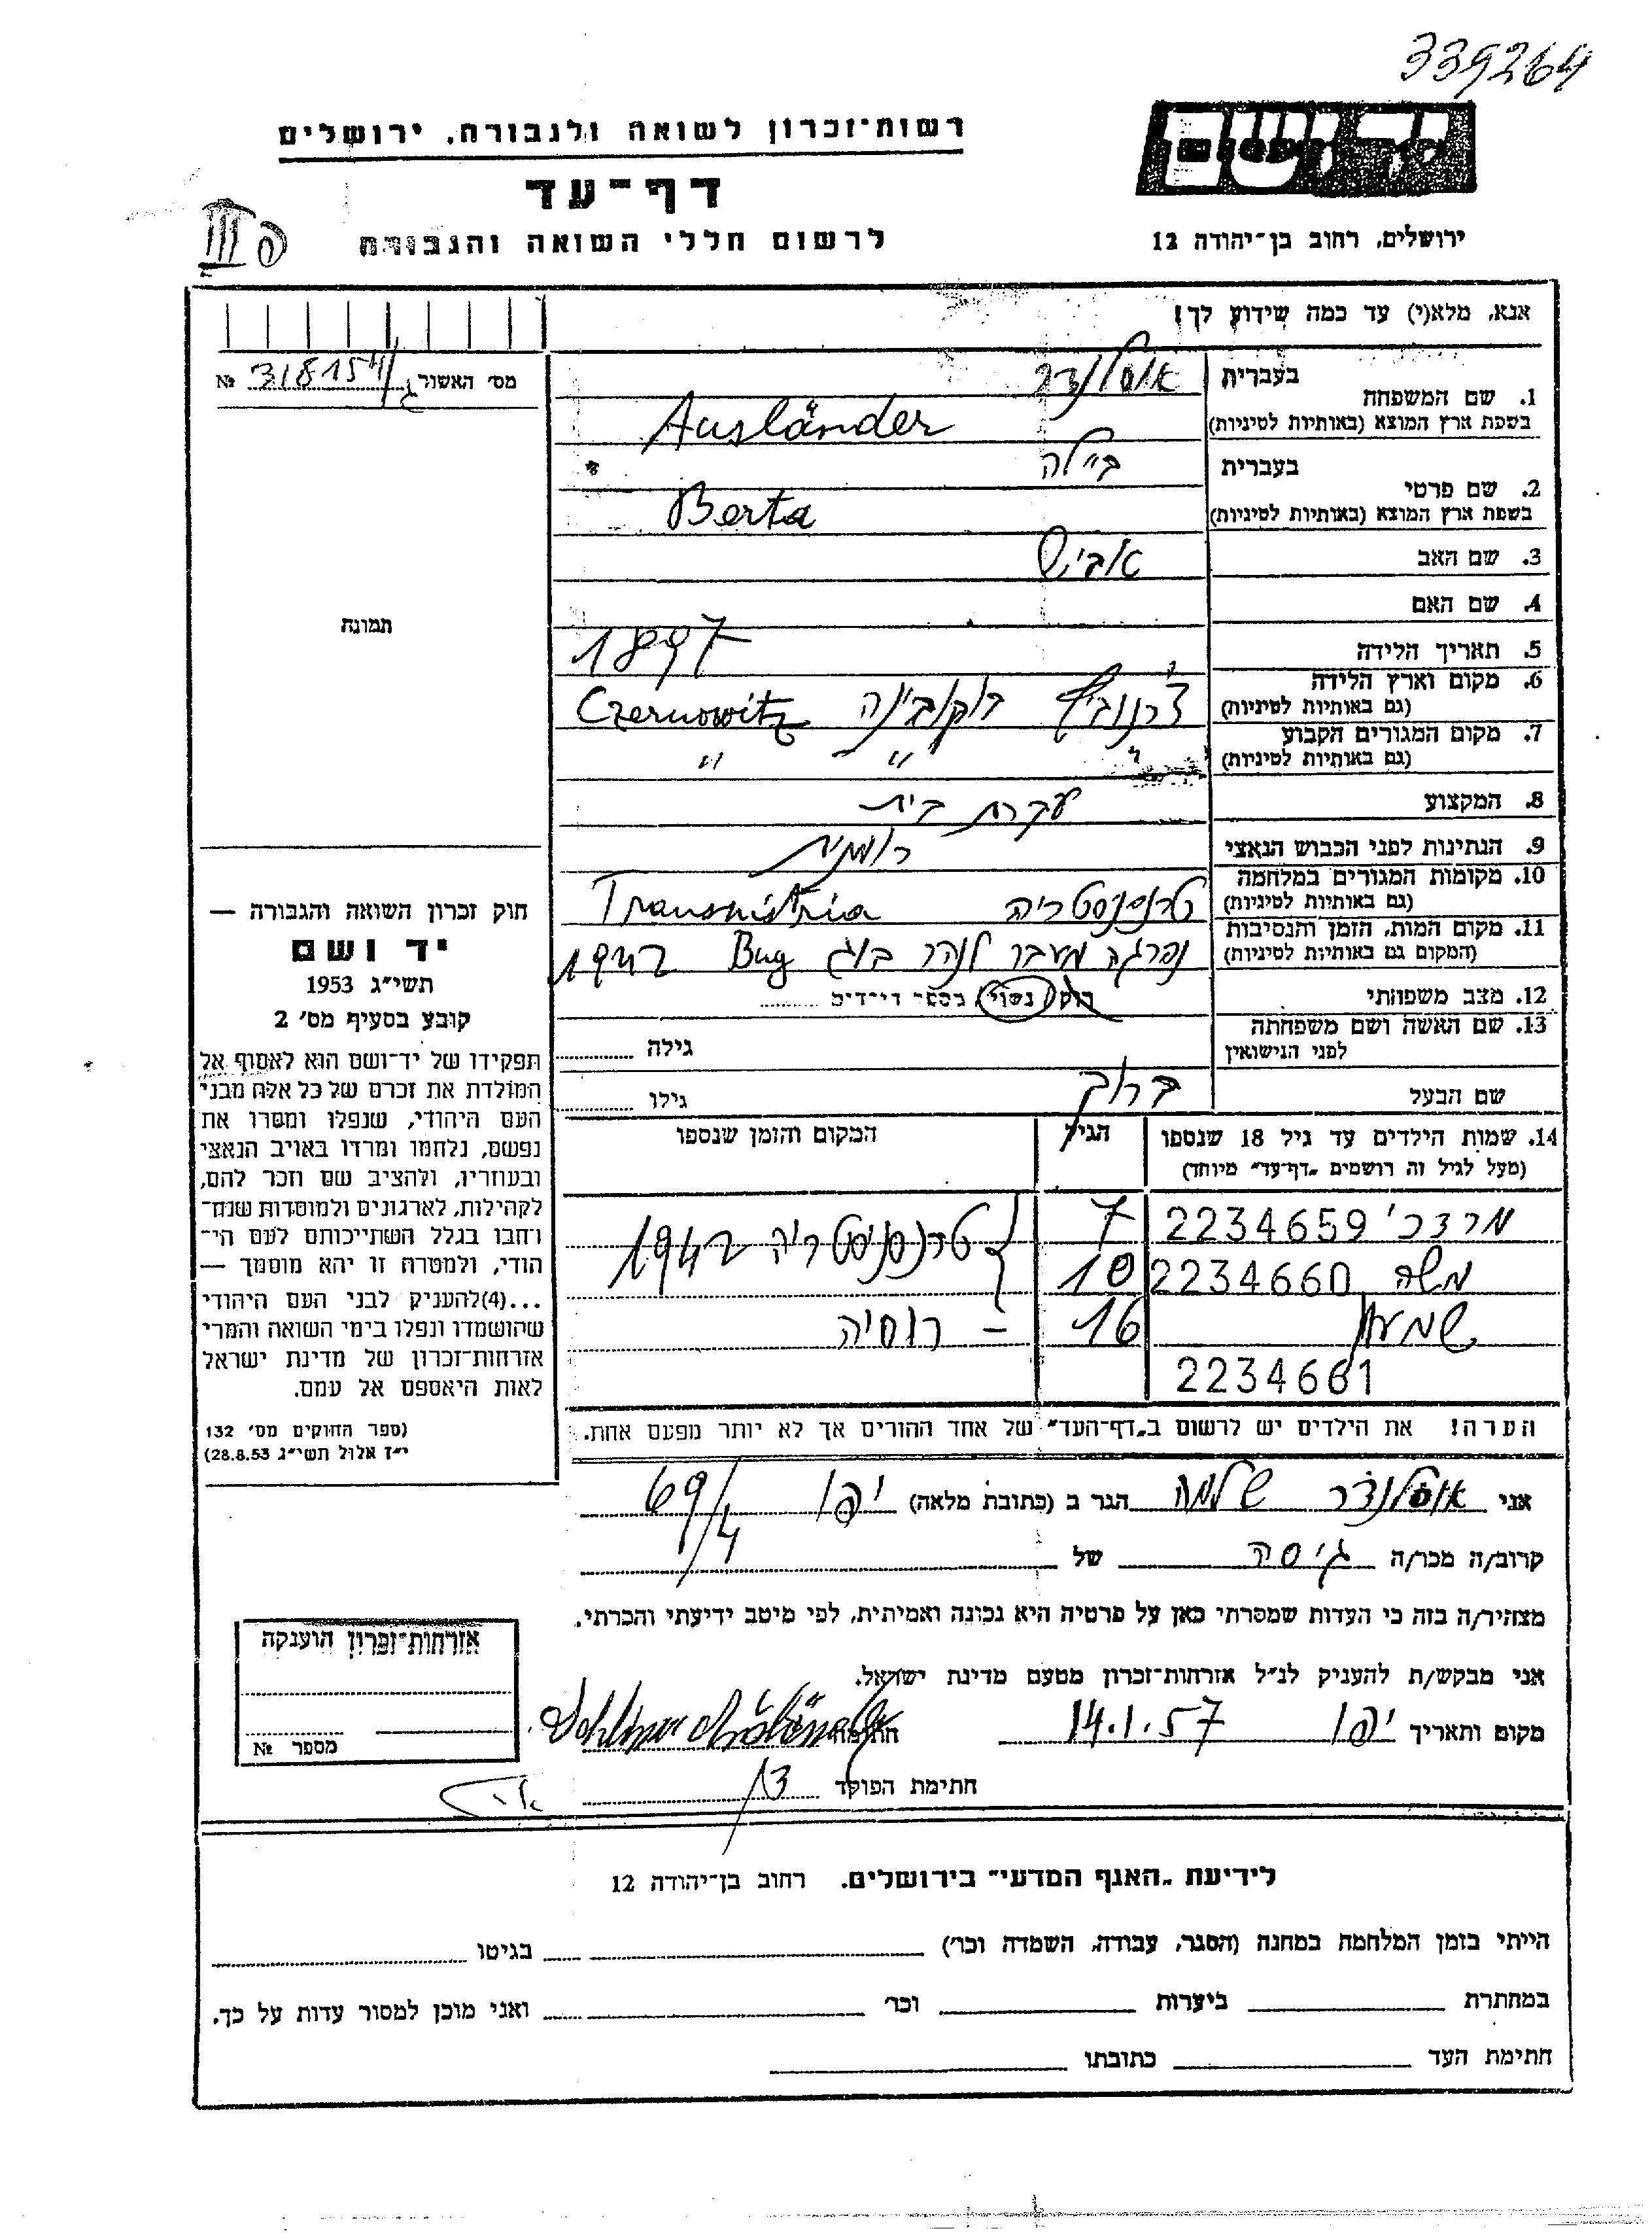 339264
יד ושם
רשות־זכרון לשואה ולגבורה, ירושלים
דף־עד
לרשום חללי השואה והגבורה
ירושלים, רחוב בן־יהודה 12
אנא, מלא(י) עד כמה שידוע לך!
מס׳ האשור 318154 №
תמונה
1. שם המשפחה
בעברית אוסלנדר
בשפת ארץ המוצא (באותיות לטיניות) Ausländer
2. שם פרטי
בעברית ביילה
בשפת ארץ המוצא (באותיות לטיניות) Berta
3. שם האב אביש
4. שם האם
5. תאריך הלידה 1897
6. מקום וארץ הלידה (גם באותיות לטיניות) צ'רנוביץ בוקובינה Czernowitz
7. מקום המגורים הקבוע (גם באותיות לטיניות) " " "
8. המקצוע עקרת בית
9. הנתינות לפני הכבוש הנאצי רומנית
10. מקומות המגורים במלחמה (גם באותיות לטיניות) טרנסנסטריה Transnistria
11. מקום המות, הזמן והנסיבות (המקום גם באותיות לטיניות) נהרגה מעבר לנהר בוג Bug 1942
12. מצב משפחתי רוק/ נשוי/ מספר הילדים
13. שם האשה ושם משפחתה לפני הנישואין
גילה
שם הבעל ברוך
גילו
14. שמות הילדים עד גיל 18 שנספו
(מעל לגיל זה רושמים "דף־עד" מיוחד)
הגיל
המקום והזמן שנספו
מרדכי 2234659 7
משה 2234660 10 טרנסניסטריה 1942
שמעון 16 – רוסיה
2234661
הערה! את הילדים יש לרשום ב"דף־העד" של אחד ההורים אך לא יותר מפעם אחת.
חוק זכרון השואה והגבורה —
יד ושם
תשי״ג 1953
קובע בסעיף מס׳ 2
תפקידו של יד־ושם הוא לאסוף אל
המולדת את זכרם של כל אלה מבני
העם היהודי, שנפלו ומסרו את
נפשם, נלחמו ומרדו באויב הנאצי
ובעוזריו, ולהציב שם וזכר להם,
לקהילות, לארגונים ולמוסדות שנח־
רבו בגלל השתייכותם לעם הי־
הודי, ולמטרה זו יהא מוסמך —
...(4)להעניק לבני העם היהודי
שהושמדו ונפלו בימי השואה והמרי
אזרחות־זכרון של מדינת ישראל
לאות היאספם אל עמם.
(ספר החוקים מס׳ 132
י״ז אלול תשי״ג 28.8.53)
אני אוסלנדר שלמה הגר ב (כתובת מלאה) יפו 69/4
קרוב/ה מכר/ה גיסה של
מצהיר/ה בזה כי העדות שמסרתי כאן על פרטיה היא נכונה ואמיתית, לפי מיטב ידיעתי והכרתי.
אני מבקש/ת להעניק לנ״ל אזרחות־זכרון מטעם מדינת ישראל.
מקום ותאריך יפו 14.1.57 חתימה
חתימת הפוקד
אזרחות־זכרון הוענקה
מספר №
לידיעת "האגף המדעי" בירושלים. רחוב בן־יהודה 12
הייתי בזמן המלחמה במחנה (הסגר, עבודה, השמדה וכר) בגיטו
במחתרת ביערות וכר ואני מוכן למסור עדות על כך.
חתימת העד כתובתו